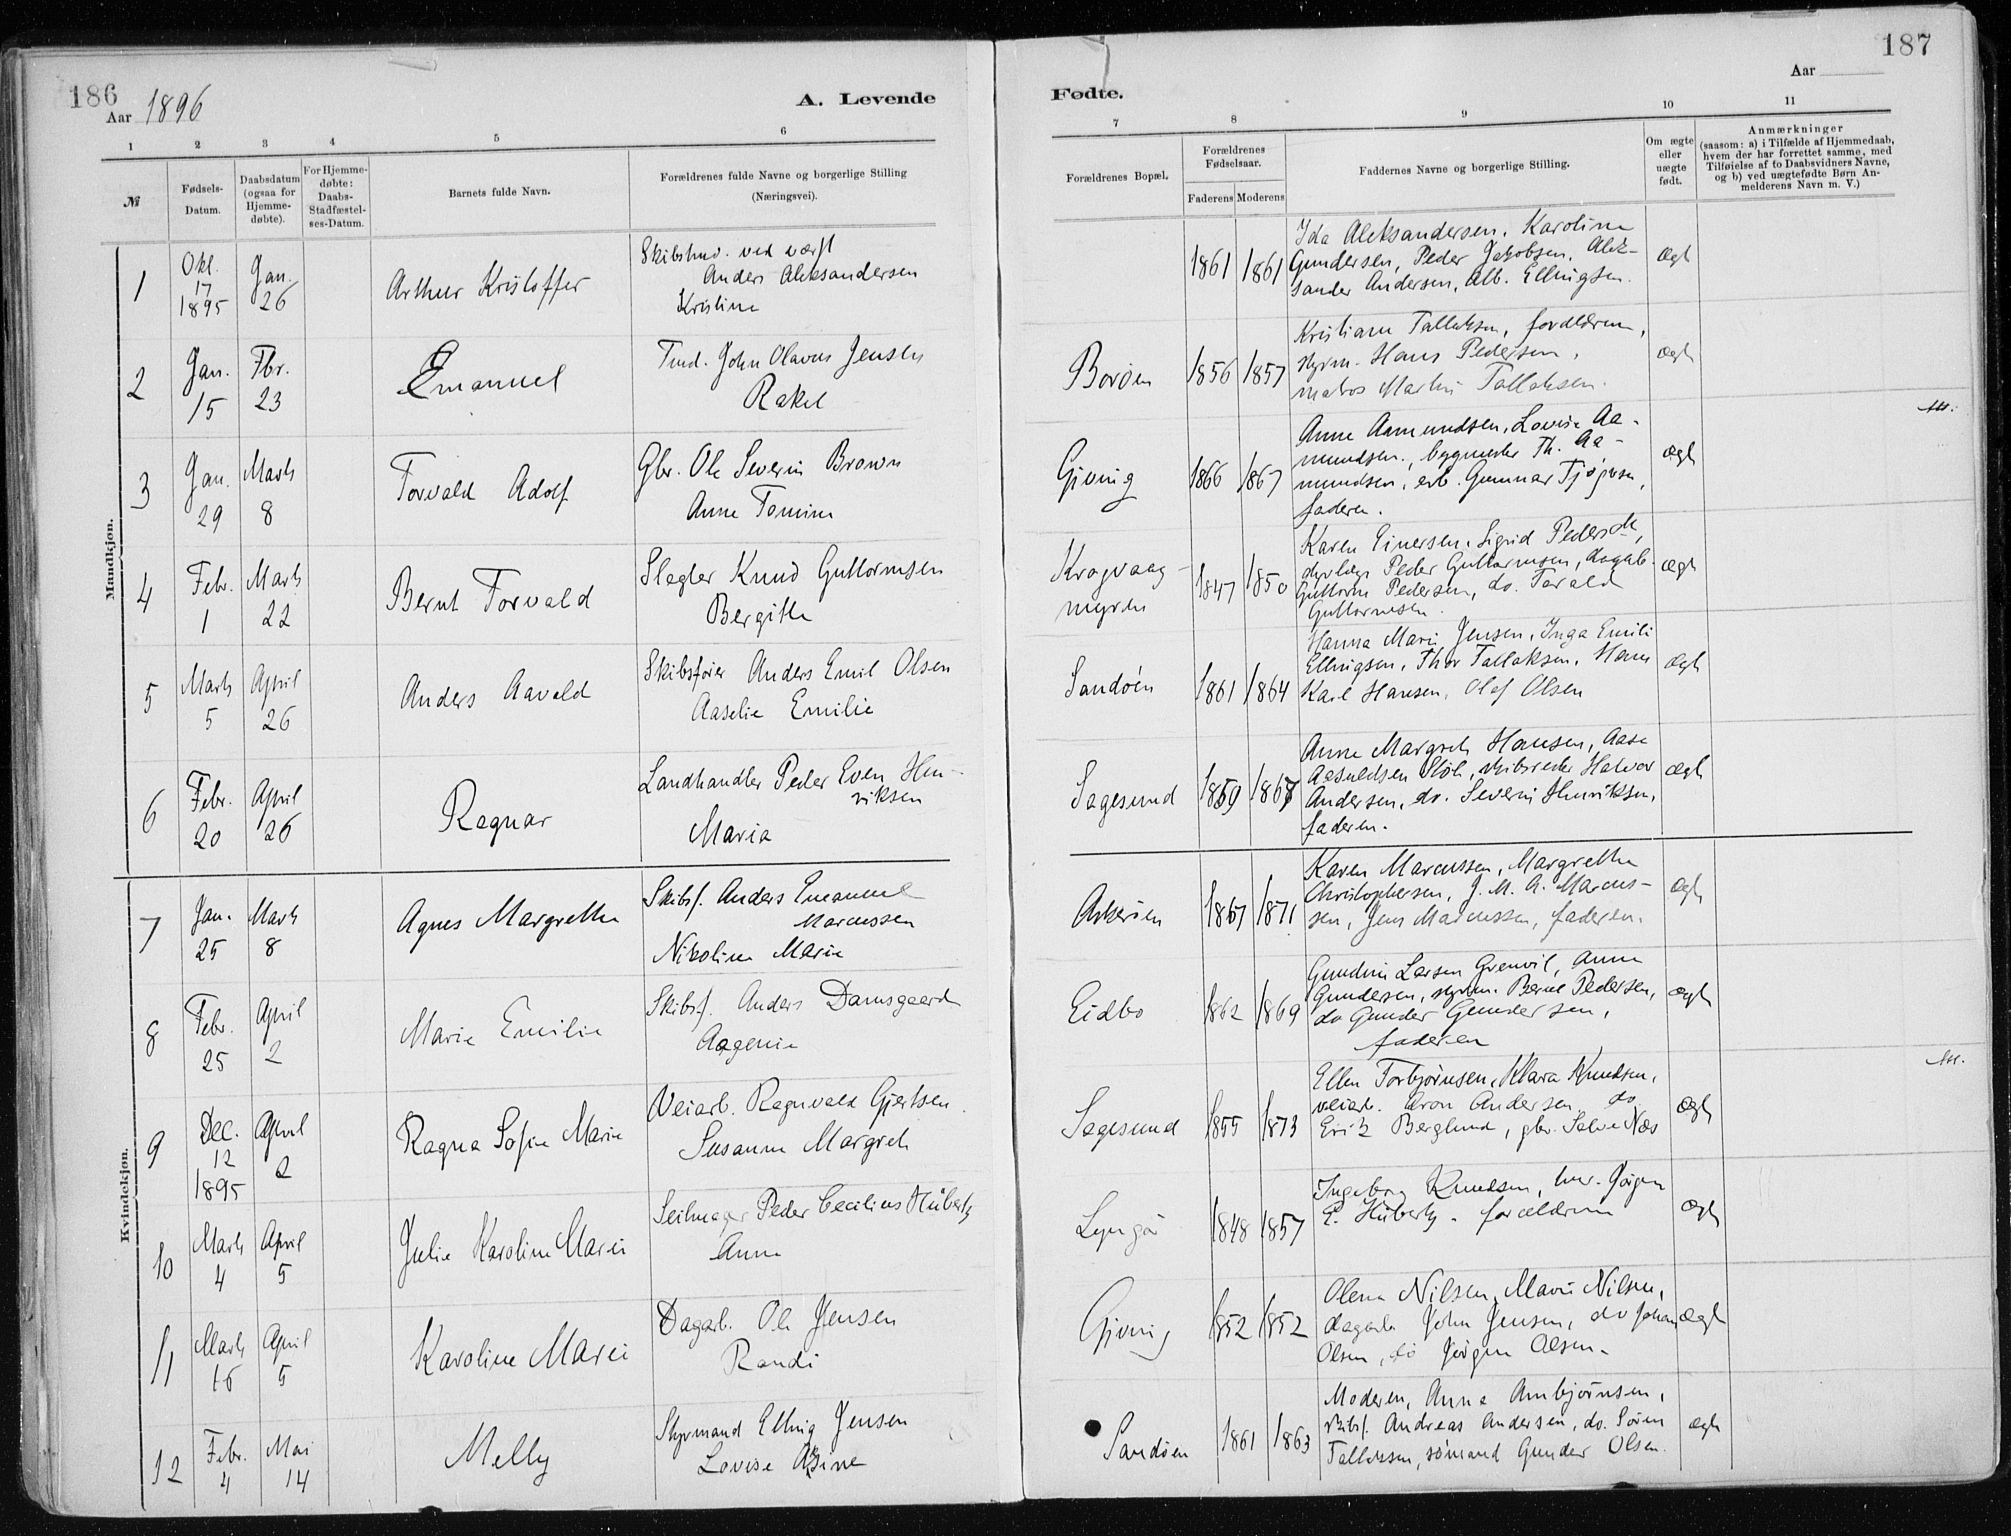 186
Aar 1896
A. Levende
1 2 3 4 5 6
№
Fødsels-
Datum.
Daabsdatum
(ogsaa for
Hjemme-
døbte).
For Hjemme-
døbte:
Daabs-
Stadfæstel-
ses-Datum.
Barnets fulde Navn.
Forældrenes fulde Navne og borgerlige Stilling
(Næringsvei).
Mandkjøn.
1
Okt.
17
1895
Jan.
26
Arthur Kristoffer
ved værft
Anders Aleksandersen
Kristine
2
Jan.
15
Fbr.
23
Emanuel
Tmd. John Olavus Jensen
Rakel
3
Jan.
29
Marts
8
Torvald Adolf
Gbr. Ole Severin Brown
Anne Tomine
4
Febr.
1
Marts
22
Bernt Torvald
Slagter Knud Guttormsen
Bergitte
5
Marts
5
April
26
Anders Aavald
Skibsfører Anders Emil Olsen
Aaselie Emilie
6
Febr.
20
April
26
Ragnar
Landhandler Peder Even Hen-
riksen
Maria
Kvindekjøn.
7
Jan.
25
Marts
8
Agnes Margrethe
Skibsf. Anders Emanuel
Marcussen
Nikoline Marie
8
Febr.
25
April
2
Marie Emilie
Skibsf. Anders Damsgaard
Aagenie
9
Dec.
12
1895
April
2
Ragna Sofie Marie
Veiarb. Ragnvald Gjertsen
Susanne Margreth
10
Marts
4
April
5
Julie Karoline Marie
Seilmager Peder Cecilius Hübertz
Anne
11
Marts
16
April
5
Karoline Marie
Dagarb. Ole Jensen
Randi
12
Febr.
4
Mai
14
Melly
Styrmand Elling Jensen
Lovise
187
Aar
Fødte.
7 8 9 10 11
Forældrenes Bopæl.
Forældrenes
Fødselsaar.
Faderens Moderens
Faddernes Navne og borgerlige Stilling.
Om ægte
eller
uægte
født.
Anmærkninger
(saasom: a) i Tilfælde af Hjemmedaab,
hvem der har forrettet samme, med
Tilføielse af to Daabsvidners Navne,
og b) ved uægtefødte Børn An-
melderens Navn m. V.)
1861 1861
Ida Aleksandersen, Karoline
Gundersen, Peder Jakobsen, Alek-
sander Andersen, Alb. Ellingsen.
ægt
Borøen
1856 1857
Kristiane Tallaksen, forældrene,
styrm. Hans Pedersen,
matros Martin Tallaksen.
ægt
Gjeving
1866 1867
Anne Aamundsen, Lovise Aa-
mundsen, bygmester Th. Aa-
mundsen, arb. Gunnar
faderen.
ægt
Krogvaag
myren
1847 1850
Karen Einersen, Sigrid Pedersdtr,
Peder Guttormsen, dagarb.
Guttorm Pedersen, do. Tarald
Guttormsen.
ægt
Sandøen
1861 1864
Hanna Marie Jensen, Inga Emilie
Ellingsen, Thor Tallaksen, Hans
Karl Hansen, Olaf Olsen
ægt
Sagesund
1859 1867
Anne Margreth Hansen, Aase
skibsreder Halvor
Andersen, do. Severin Henriksen,
faderen.
ægt
Askerøen
1867 1871
Karen Marcussen, Margrethe
Christophersen, J. M. A. Marcus-
sen, Jens Marcussen, faderen.
ægt
Eidbo
1862 1869
Gundine Larsen Grenvil, Anne
Gundersen, styrm. Bernt Pedersen,
do Gunder Gundersen,
faderen
ægt
Sagesund
1855 1873
Ellen Torbjørnsen, Klara Knudsen,
veiarb. Aron Andersen, do
Erik Berglund, gbr. Salve Næs
ægt
Lyngør
1848 1857
Ingeborg Knudsen, Jørgen
E. Hübertz, forældrene
ægt
Gjeving
1852 1852
Olene Nilsen, Marie Nilsen,
dagarb John Jensen, do Johan
Olsen, do Jørgen Olsen.
ægt
Sandøen
1861 1863
Moderen, Anne Ambjørnsen,
skibsf. Andreas Andersen, do. Søren
Tallaksen, sømand Gunder Olsen.
ægt